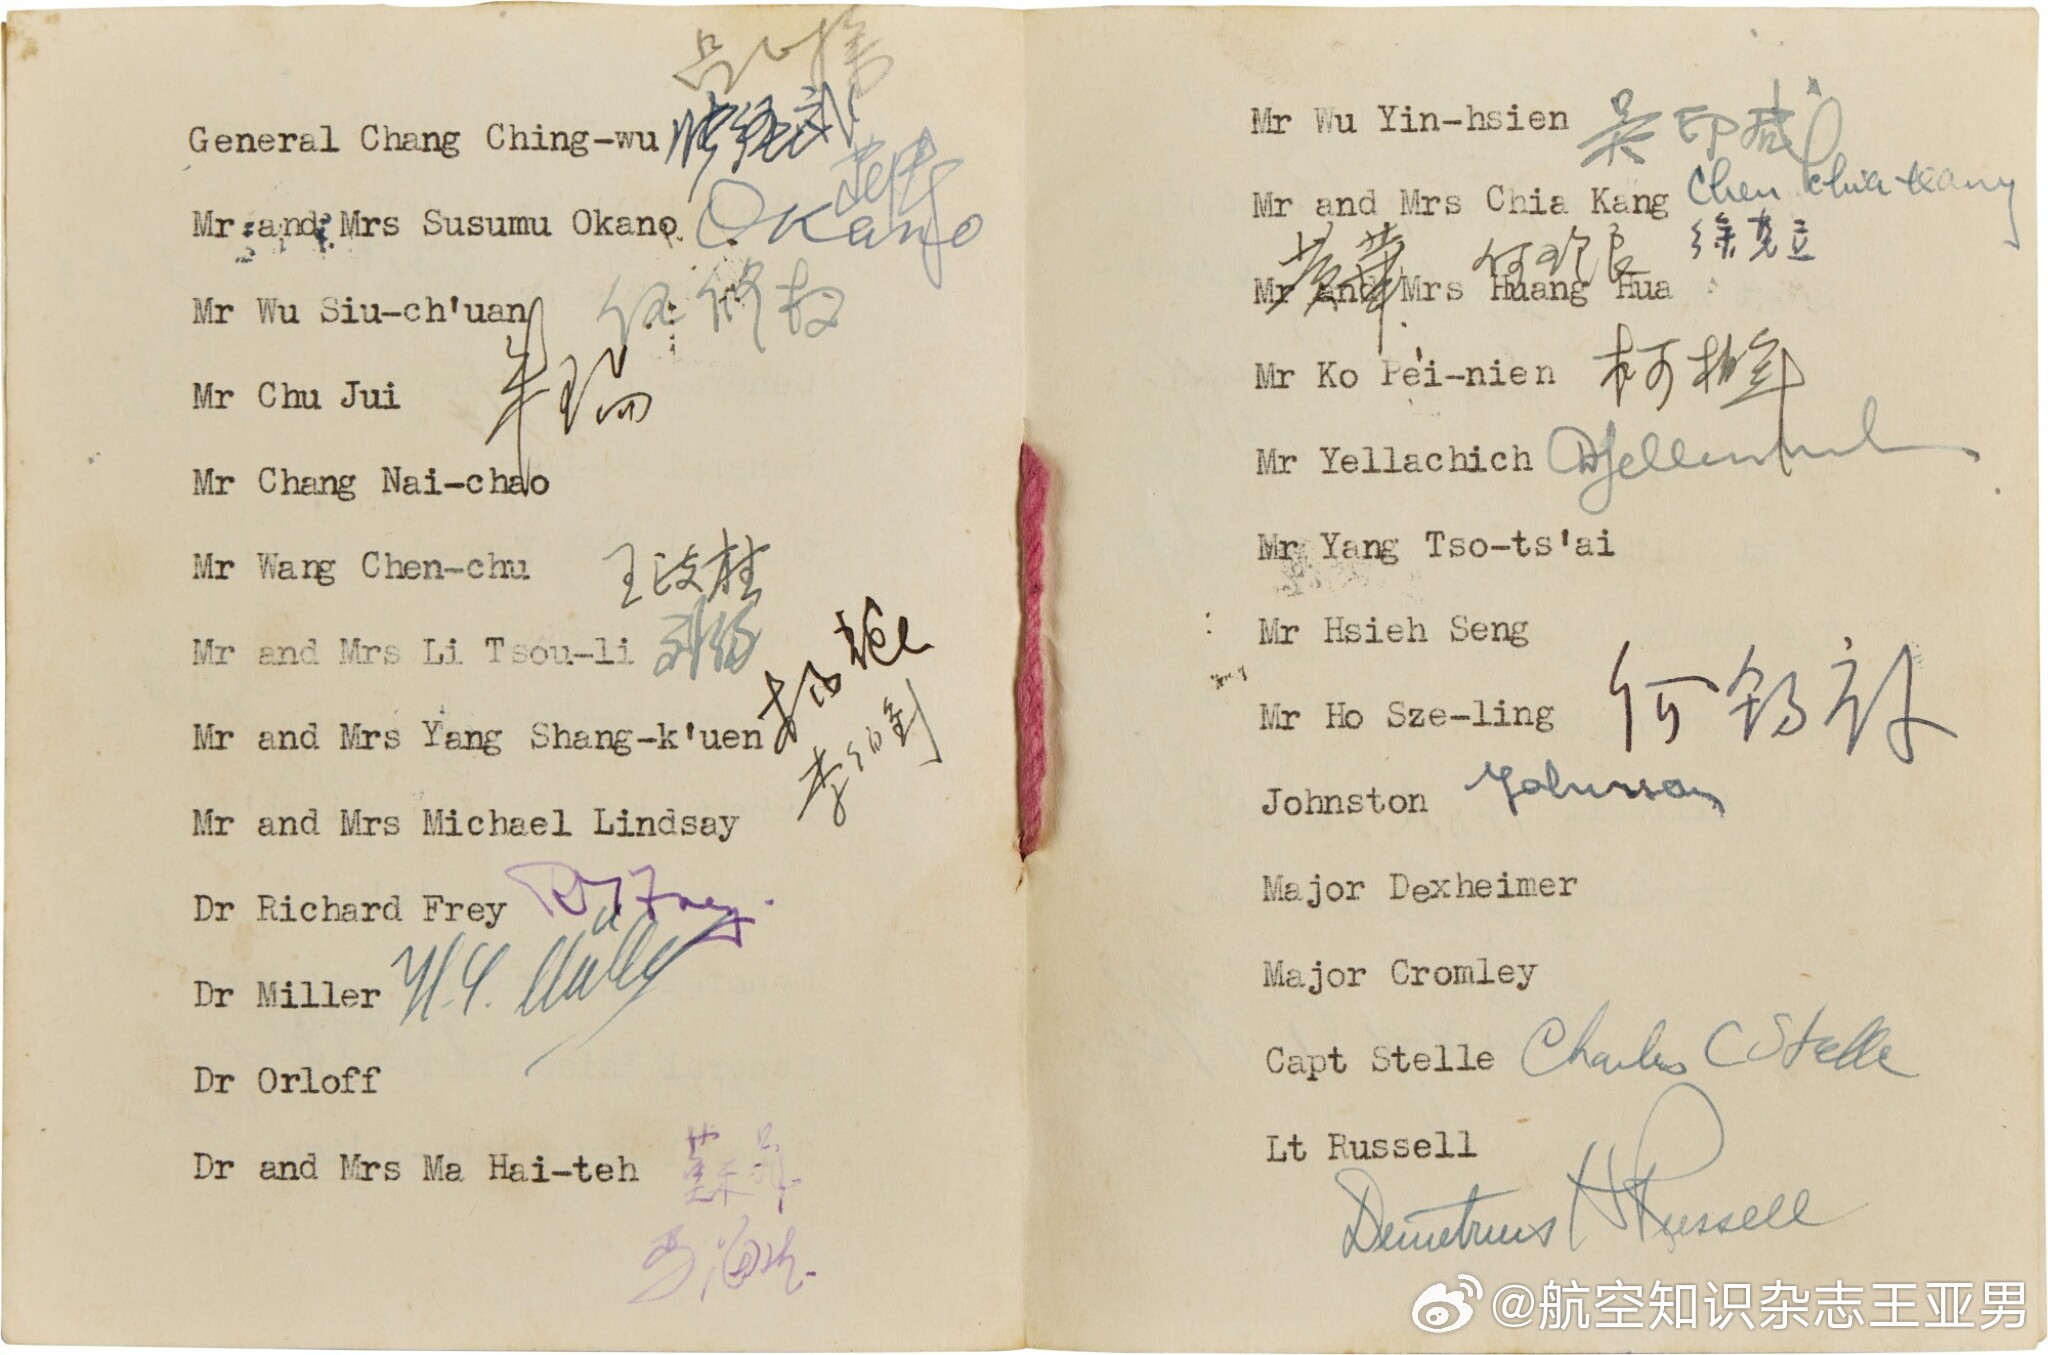 General Chang Ching-wu
Mr and Mrs Susumu Okano Okano
Mr Wu Siu-ch'uan 伍修权
Mr Chu Jui 朱瑞
Mr Chang Nai-chao
Mr Wang Chen-chu 王政柱
Mr and Mrs Li Tsou-li
Mr and Mrs Yang Shang-k'uen
李伯钊
Mr and Mrs Michael Lindsay
Dr Richard Frey R Frey.
Dr Miller
Dr Orloff
Dr and Mrs Ma Hai-teh 蘇菲
马海德
Mr Wu Yin-hsien 吴印咸
Mr and Mrs Chia Kang Chen Chia kang
徐克立
黄華 何理良
Mr and Mrs Huang Hua
Mr Ko Pei-nien 柯柏年
Mr Yellachich
Mr Yang Tso-ts'ai
Mr Hsieh Seng
Mr Ho Sze-ling 何
Johnston
Major Dexheimer
Major Cromley
Capt Stelle Charles C Stelle
Lt Russell
Demetrius H Russell
@航空知识杂志王亚男